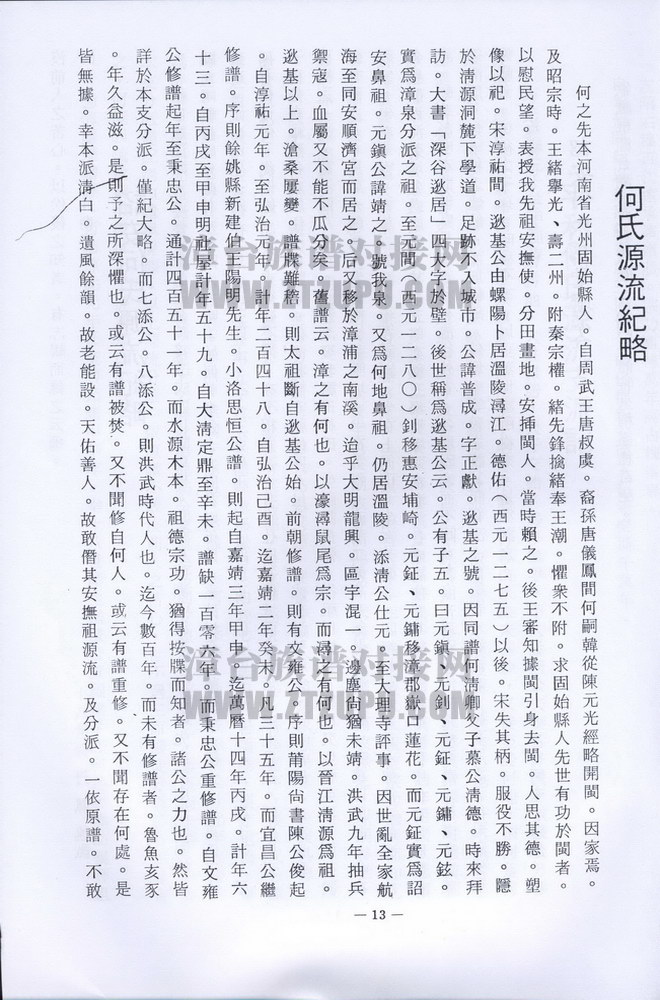 何氏源流紀略
何之先本河南省光州固始縣人。自周武王唐叔虞。裔孫唐儀鳳間何嗣韓從陳元光經略開閩。因家焉。
及昭宗時。王緒擧光、壽二州。附秦宗權。緒先鋒擒緒奉王潮。懼衆不附。求固始縣人先世有功於閩者。
以慰民望。表授我先祖安撫使。分田畫地。安揷閩人。當時賴之。後王審知據閩引身去閩。人思其德。塑
像以祀。宋淳祐間。逖基公由螺陽卜居溫陵潯江。德佑（西元一二七五）以後。宋失其柄。服役不勝。隱
於淸源洞麓下學道。足跡不入城市。公諱普成。字正獻。逖基之號。因同譜何淸卿父子慕公淸德。時來拜
訪。大書「深谷逖居」四大字於壁。後世稱爲逖基公云。公有子五。曰元鎭、元釗、元鉦、元鏞、元鉉。
實爲漳泉分派之祖。至元間（西元一二八〇）釗移惠安埔崎。元鉦、元鏞移漳郡嶽口蓮花。而元鉦實爲詔
安鼻祖。元鎭公諱靖之。號抉泉。又爲何地鼻祖。仍居溫陵。添淸公仕元。至大理寺評事。因世亂全家航
海至同安順濟宮而居之。后又移於漳浦之南溪。迨乎大明龍興。區宇混一。邊塵尙猶未靖。洪武九年抽兵
禦寇。血屬又不能不瓜分矣。舊譜云。漳之有何也。以濠潯鼠尾爲宗。而潯之有何也。以晉江淸源爲祖。
逖基以上。滄桑屢變。譜牒難稽。則太祖斷自逖基公始。前朝修譜。則有文雍公。序則莆陽尙書陳公俊起
。自淳祐元年。至弘治元年。計年二百四十八。自弘治己酉。迄嘉靖二年癸未。凡三十五年。而宜昌公繼
修譜。序則餘姚縣新建伯王陽明先生。小洛思恒公譜。則起自嘉靖三年甲申。迄萬曆十四年丙戌。計年六
十三。自丙戌至甲申明社屋計年五十九。自大淸定鼎至辛未。譜缺一百零六年。而秉忠公重修譜。自文雍
公修譜起年至秉忠公。通計四百五十一年。而水源木本。祖德宗功。猶得按牒而知者。諸公之力也。然皆
詳於本支分派。僅紀大略。而七添公。八添公。則洪武時代人也。迄今數百年。而未有修譜者。魯魚亥豕
。年久益滋。是則予之所深懼也。或云有譜被焚。又不聞修自何人。或云有譜重修。又不聞存在何處。是
皆無據。幸本派淸白。遺風餘韻。故老能設。天佑善人。故敢僭其安撫祖源流。及分派。一依原譜。不敢
— 13 —
漳台族谱对接网
WWW.ZTZUPU.COM
漳台族谱对接网
WWW.ZTZUPU.COM